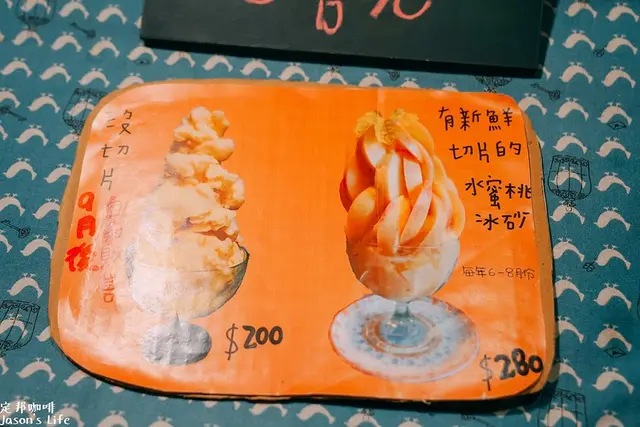 沒切片
9月後
$200
有新鮮
切片的
水蜜桃
冰砂
每年6-8月份
$280
定邦咖啡
Jason's Life